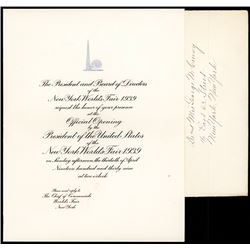 The President and Board of Directors
of the
New York World's Fair 1939
request the honor of your presence
at the
Official Opening
by the
President of the United States
of the
New York World's Fair 1939
on Sunday afternoon the thirtieth of April
Nineteen hundred and thirty nine
at two o'clock
Please reply to
The Chief of Ceremonials
World's Fair
New York
East 42 Street
New York, New York